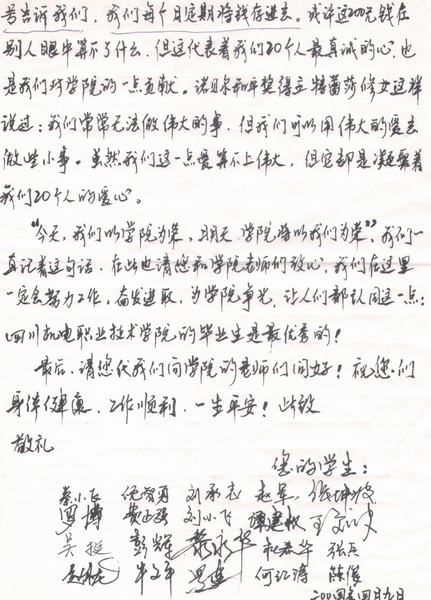 号告诉我们，我们每个月定期将钱存进去。或许这200元钱在
别人眼中算不了什么，但这代表着我们20个人最真诚的心，也
是我们对学院的一点贡献。诺贝尔和平奖得主特蕾莎修女这样
说过：我们常常无法做伟大的事，但我们可以用伟大的爱去
做些小事。虽然我们这一点爱算不上伟大，但它却是凝聚着
我们20个人的爱心。
“今天，我们以学院为荣，明天，学院将以我们为荣”，我们一
直记着这句话，在此也请您和学院老师们放心，我们在这里
一定会努力工作，奋发进取，为学院争光，让人们都认同这一点：
四川机电职业技术学院的毕业生是最优秀的！
最后，请您代我们向学院的老师们问好！祝您们
身体健康，工作顺利，一生平安！此致
敬礼
您的学生：
蔡小飞 刘承志 赵军
罗博 刘小飞
吴挺 彭辉 祝春华 张兵
何江涛 陈俊
2004年四月九日